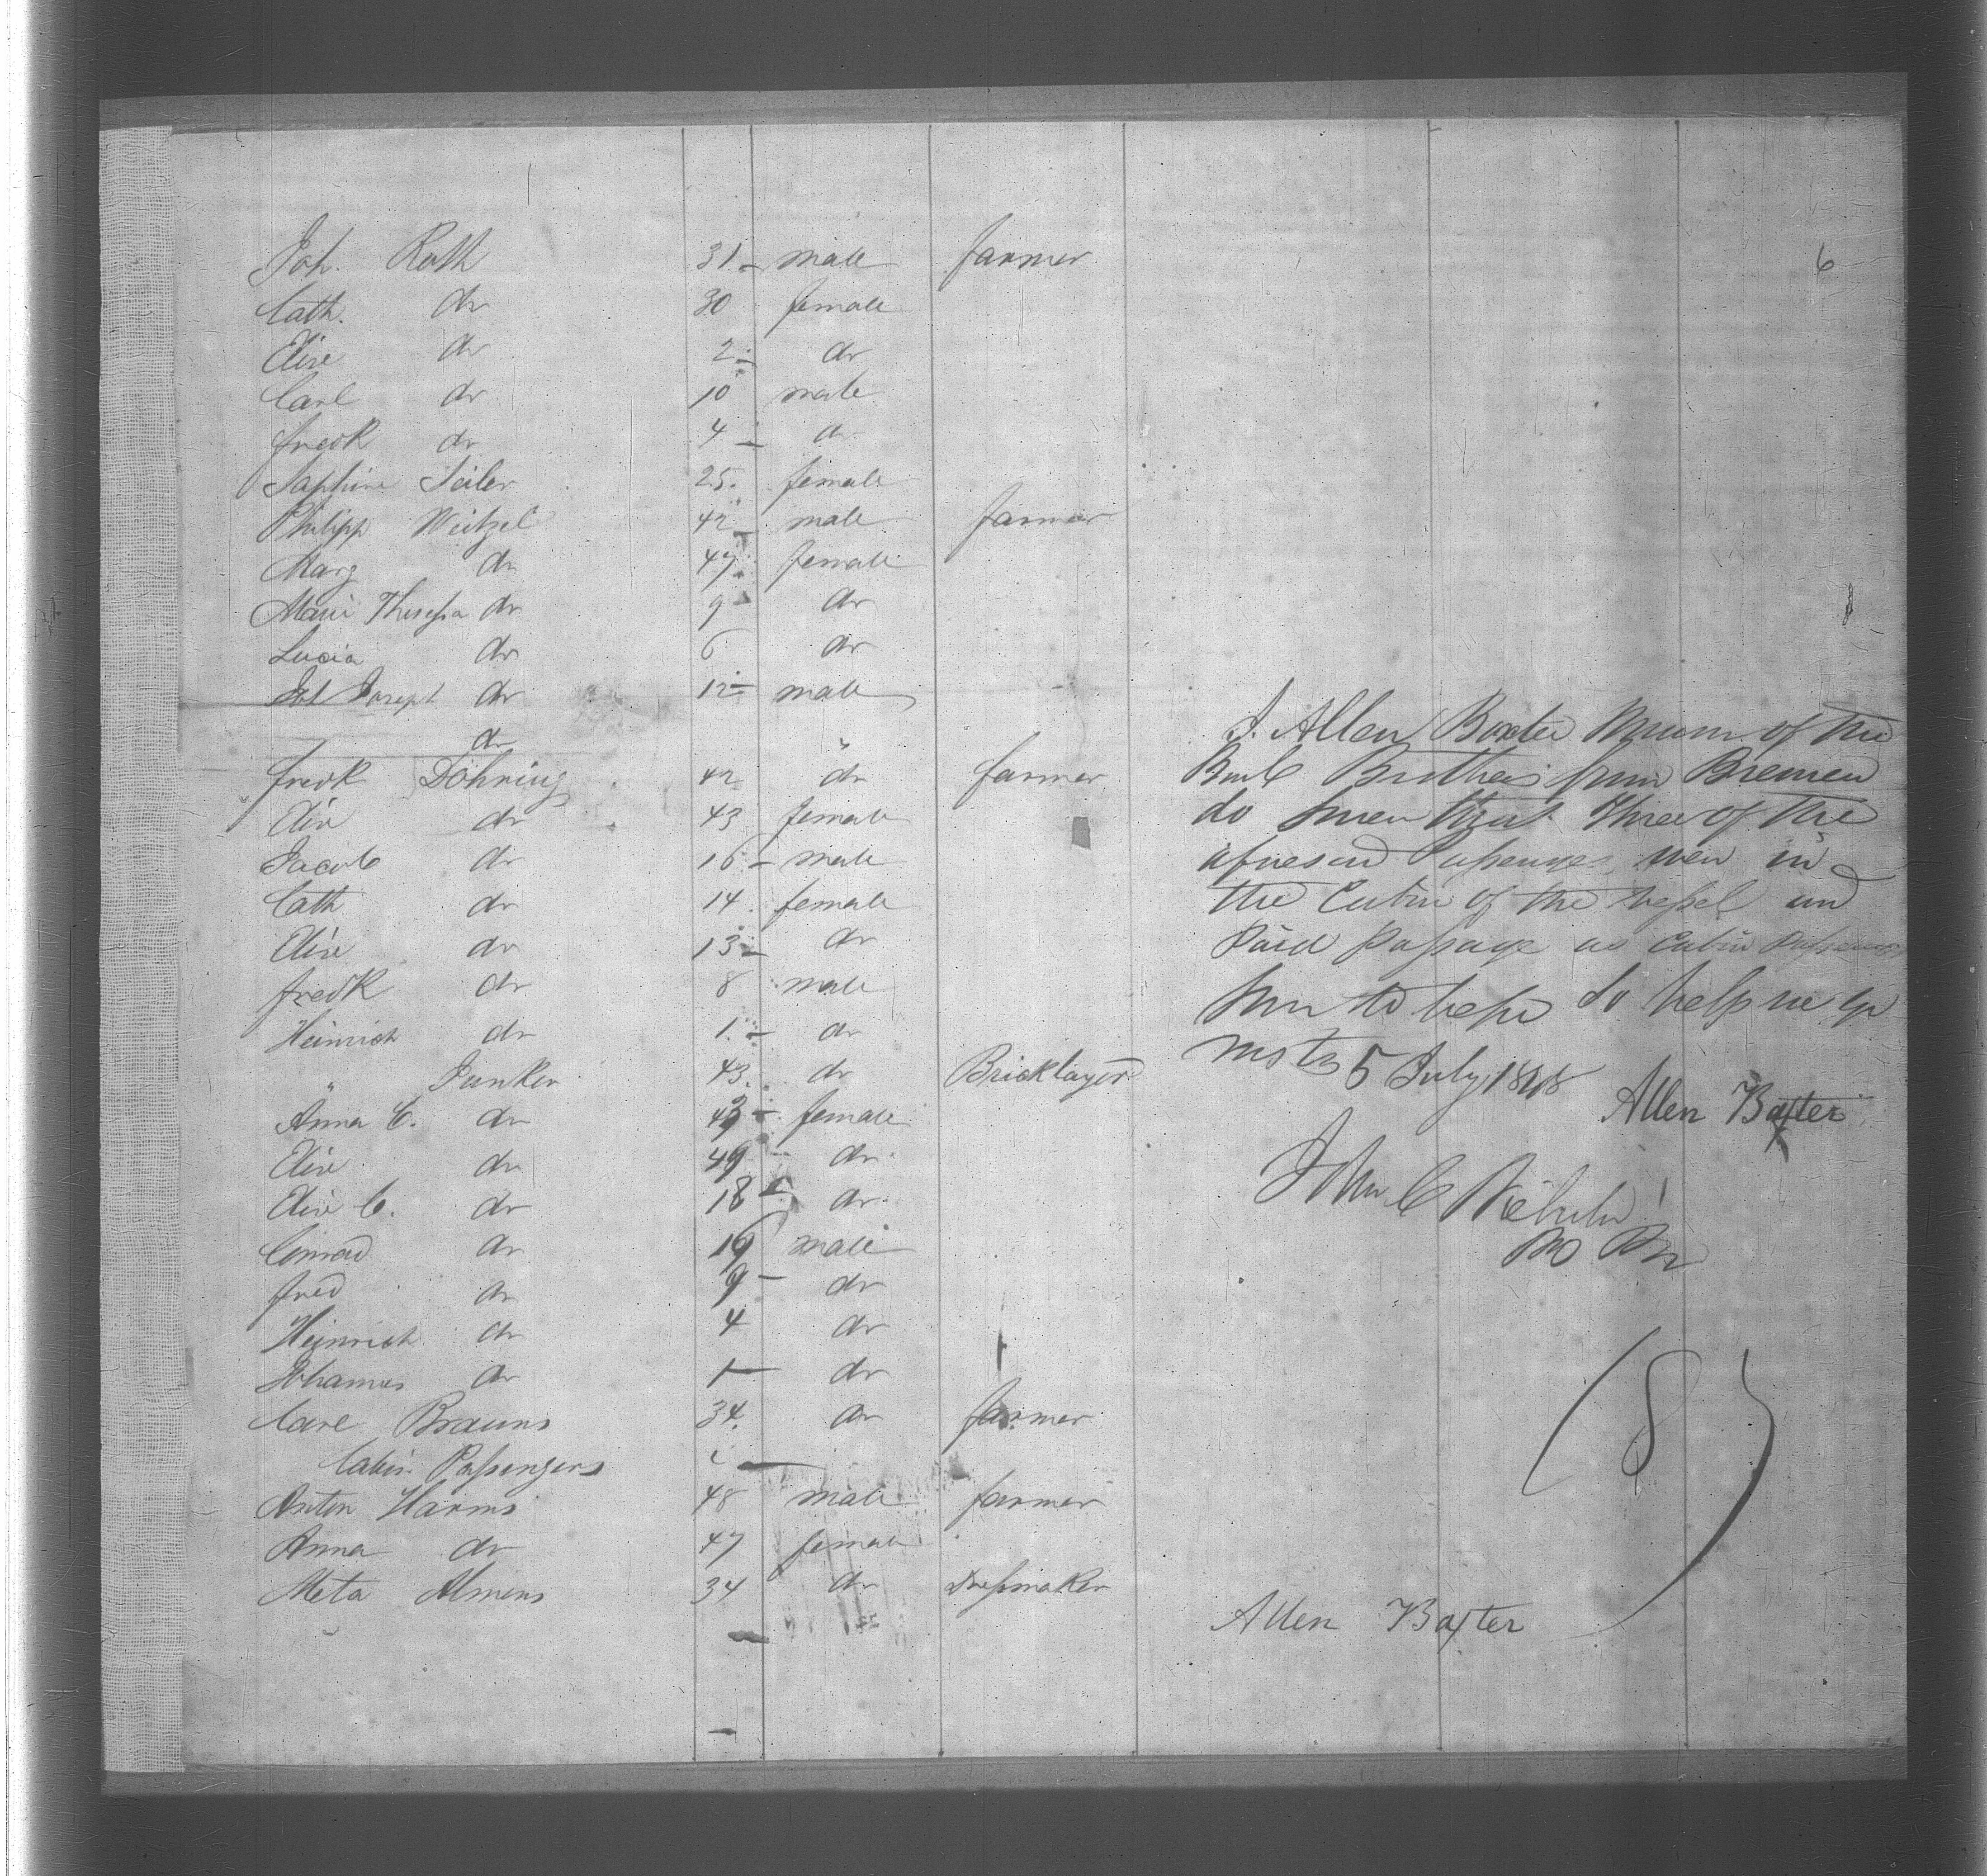 6
Joh. Roth 31 male farmer
Cath. do 30 female
Elise do 2 do
Carl do 10 male
Fredk do 4 do
Saphine Seiler 25 female
Philipp Weitzel 42 male farmer
Marg do 47 female
Marie Theressa do 9 do
Lucia do 6 do
Joh Joseph do 12 male
do "
Fredk Döhring 42 do farmer
Elise do 43 female
Jacob do 16 male
Cath do 14 female
Elise do 13 do
Fredk do 8 male
Heinrich do 1 do
" Junker 43 do Bricklayer
Anna C. do 43 female
Elise do 49 do
Elise C. do 18 do
Conrad do 16 male
Fred do 9 do
Heinrich do 4 do
Johannes do 1 do
Carl Brauns 34 do farmer
Cabin Passengers
Anton Harms 48 male farmer
Anna do 47 female
Meta Almens 34 do Dressmaker
I. Allen Baxter of the
Brothers from Bremen
do swear that three of the
aforesaid Passengers were in
the Cabin of the vessel and
Paid Passage as Cabin Passengers
Sworn to before So help me God
5 July 1848
Allen Baxter
John C
(8)
Allen Baxter